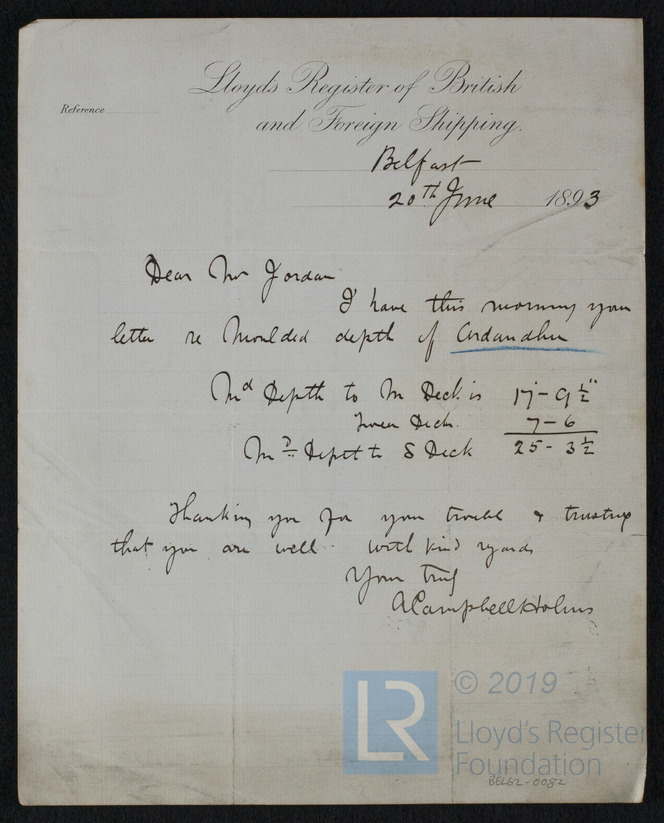 Lloyd's Register of British
and Foreign Shipping.
Reference
Belfast
20th June 1893
Dear Mr Jordan
I have this morning your
letter re Moulded depth of Ardandhu
Md Depth to M Deck is 17'-9½"
Tween Deck. 7-6
Md Depth to S Deck 25-3½
Thanking you for your trouble & trusting
that you are well with kind regards
Yours truly
ACampbellHolms
LR
© 2019
Lloyd's Register
Foundation
BEL62-0082